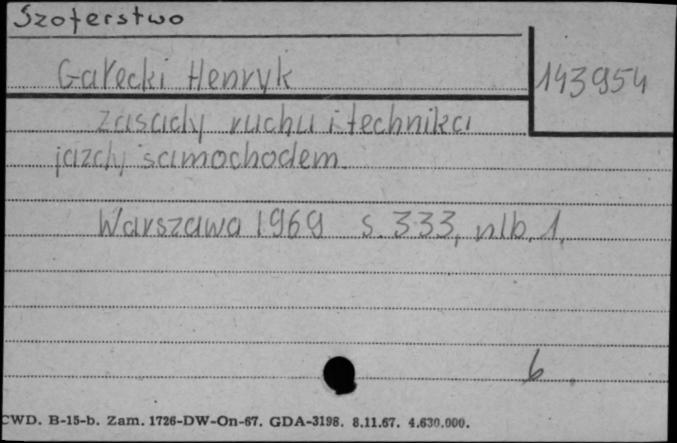 Szoferstwo
Gałecki Henryk
143954
zasady ruchu i technika
jazdy samochodem.
Warszawa 1969 s. 333, nlb. 1.
6
CWD. B-15-b. Zam. 1726-DW-On-67. GDA-3198. 8.11.67. 4.630.000.